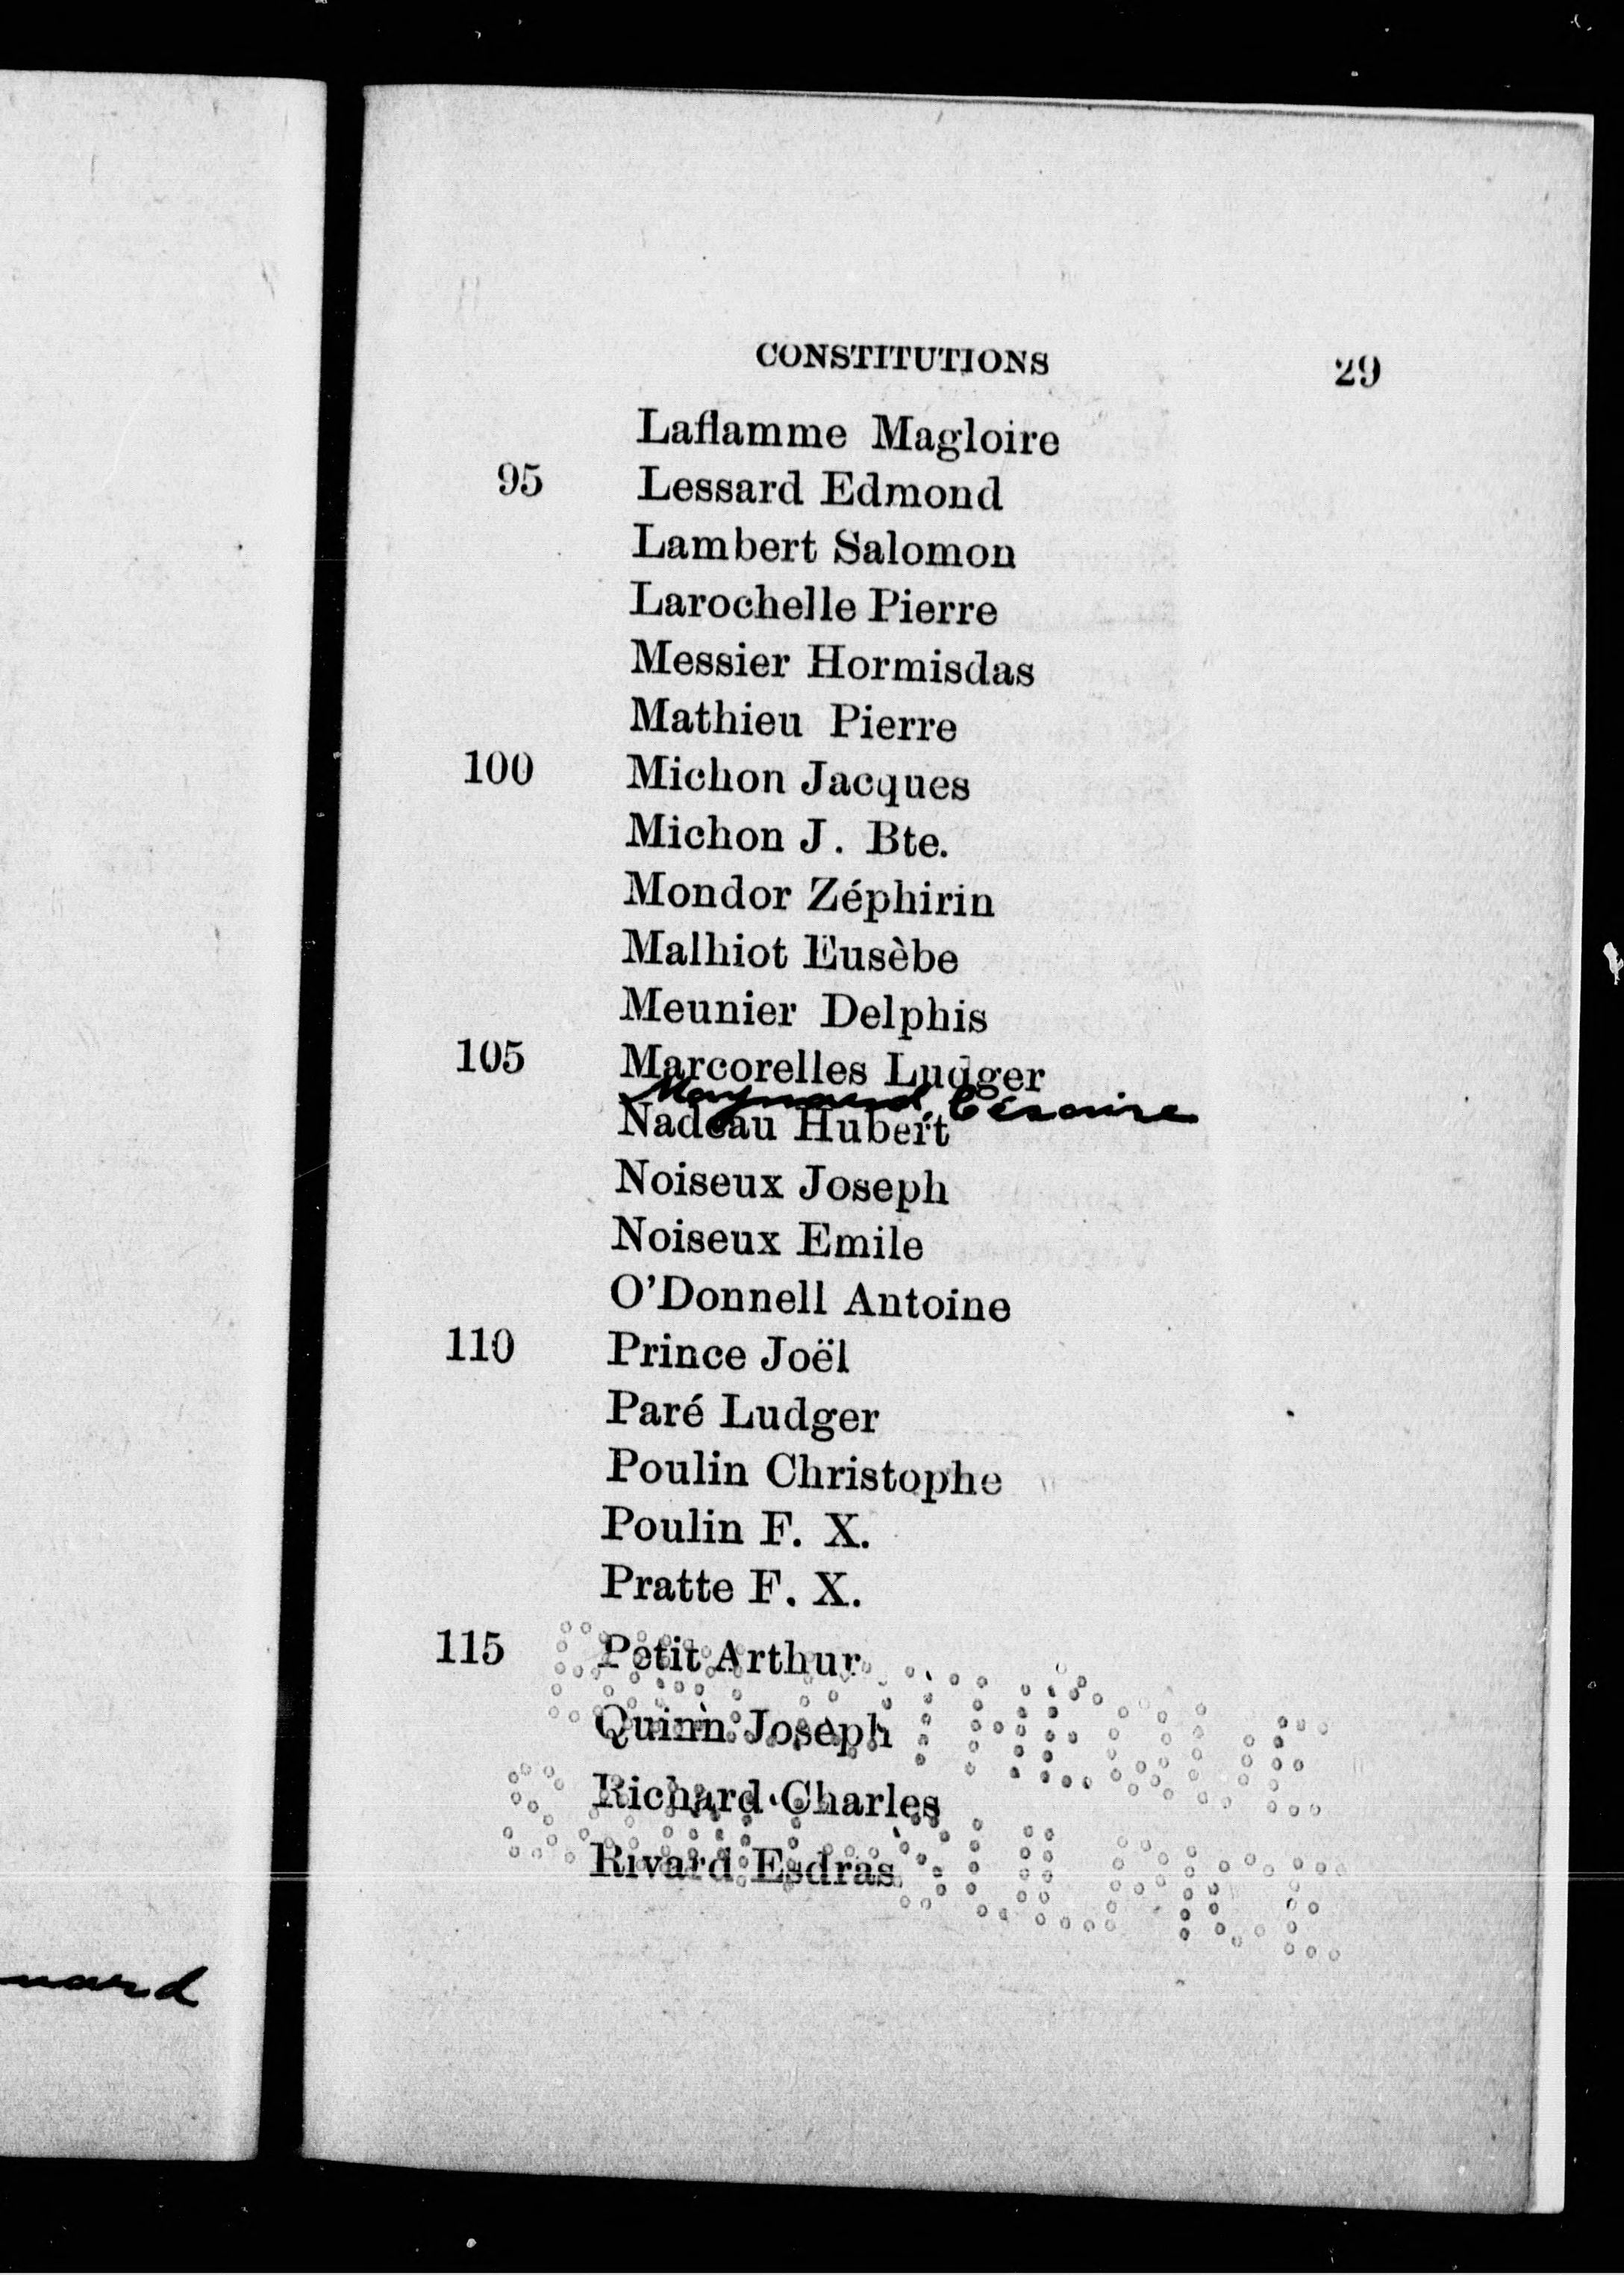 CONSTITUTIONS 29
Laflamme Magloire
95 Lessard Edmond
Lambert Salomon
Larochelle Pierre
Messier Hormisdas
Mathieu Pierre
100 Michon Jacques
Michon J. Bte.
Mondor Zéphirin
Malhiot Eusèbe
Meunier Delphis
105 Marcorelles Ludger
Maynard, Césaire
Nadeau Hubert
Noiseux Joseph
Noiseux Emile
O'Donnell Antoine
110 Prince Joël
Paré Ludger
Poulin Christophe
Poulin F. X.
Pratte F. X.
115 Petit Arthur
Quinn Joseph
Richard Charles
Rivard Esdras